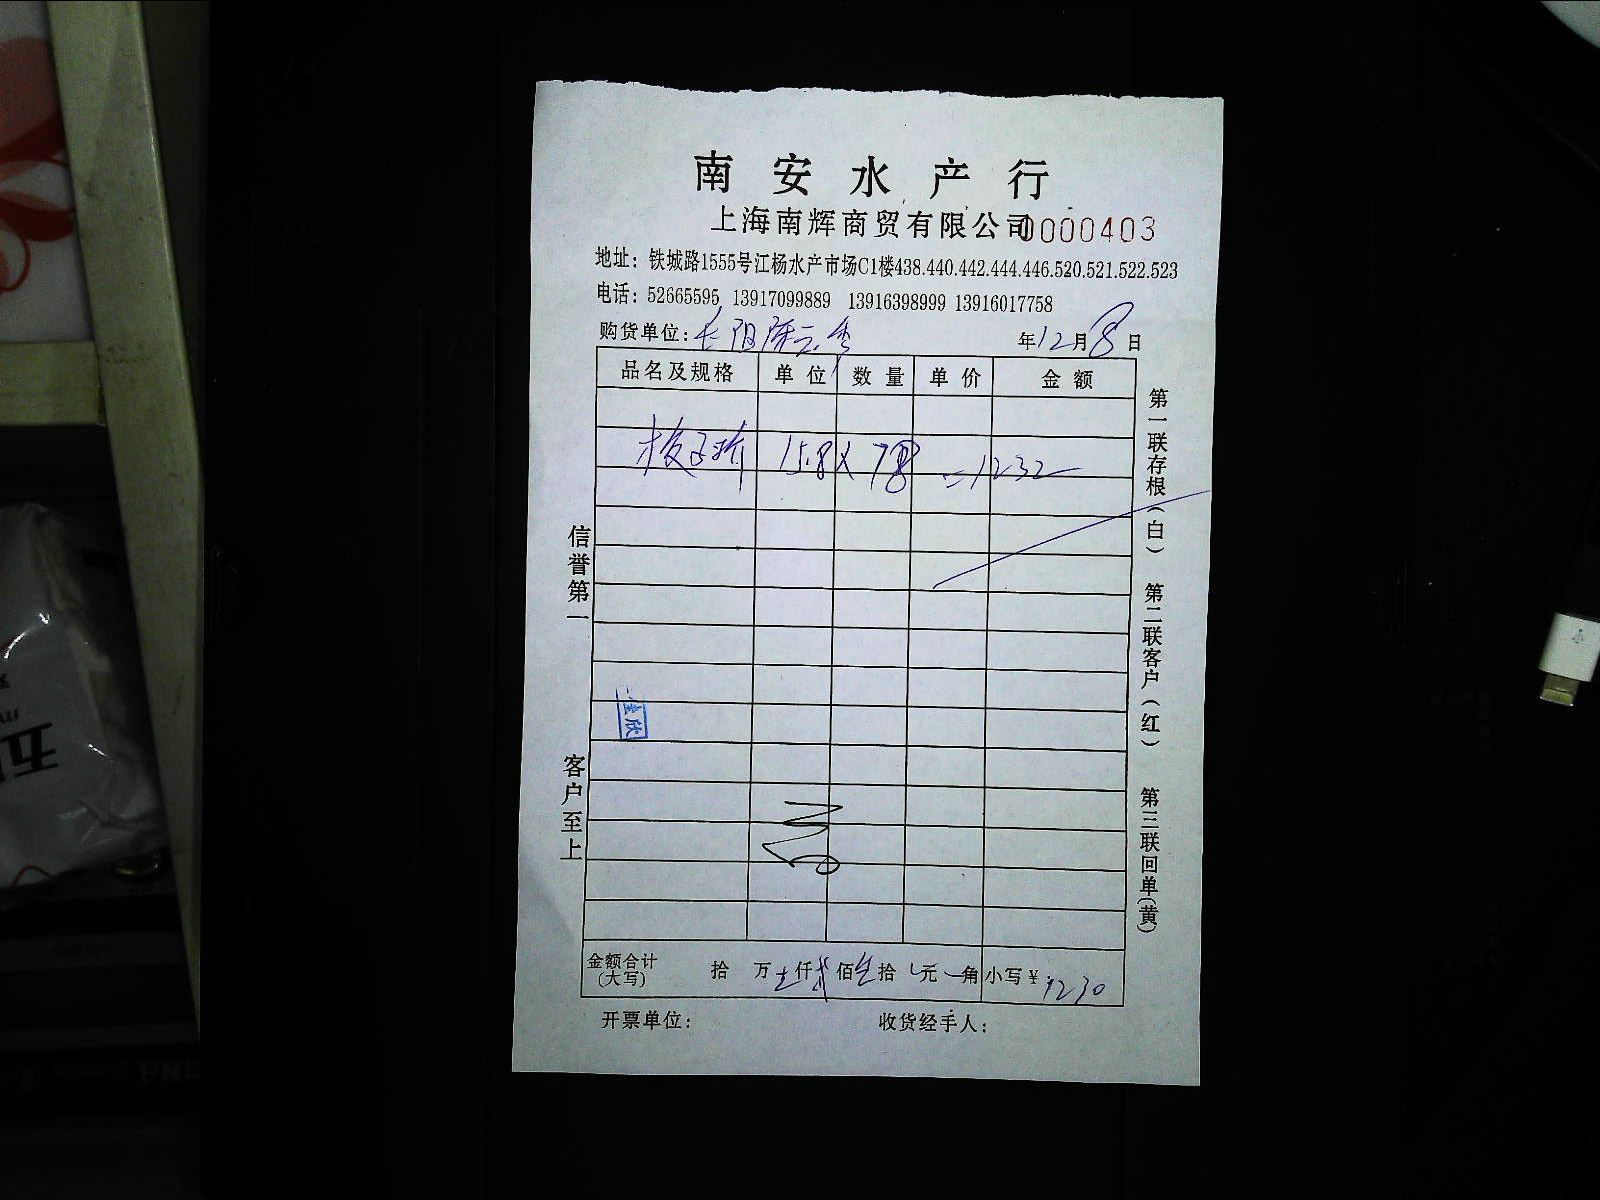 南安水产行
上海南辉商贸有限公司 0000403
地址：铁城路1555号江杨水产市场C1楼438.440.442.444.446.520.521.522.523
电话：52665595 13917099889 13916398999 13916017758
购货单位：长阳陈云秀 年12月8日
品名及规格 单位 数量 单价 金额
梭子 15.8 × 78 = 1232
信誉第一
客户至上
佳欣
第一联存根（白） 第二联客户（红） 第三联回单（黄）
金额合计（大写） 拾 万 仟 佰 拾 元 角 小写¥：1230
开票单位： 收货经手人：
五